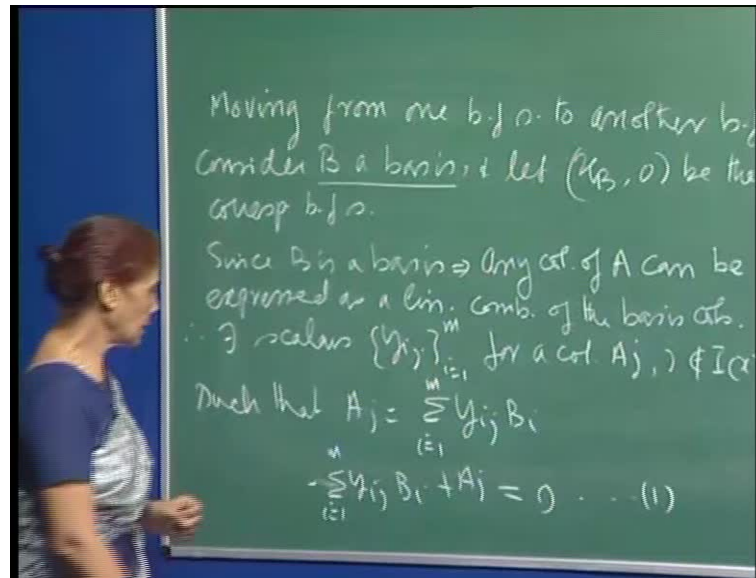 Moving from one b.f.s. to another b.f
Consider B a basis, & let (x_B, 0) be the
corresp b.f.s.
Since B is a basis ⇒ Any col. of A can be
expressed as a lin. comb. of the basis cols.
∴ ∃ scalars {y_ij}_{i=1}^m for a col. A_j, j ∉ I(x
Such that A_j = Σ_{i=1}^m y_ij B_i
-Σ_{i=1}^m y_ij B_i + A_j = 0 .... (1)